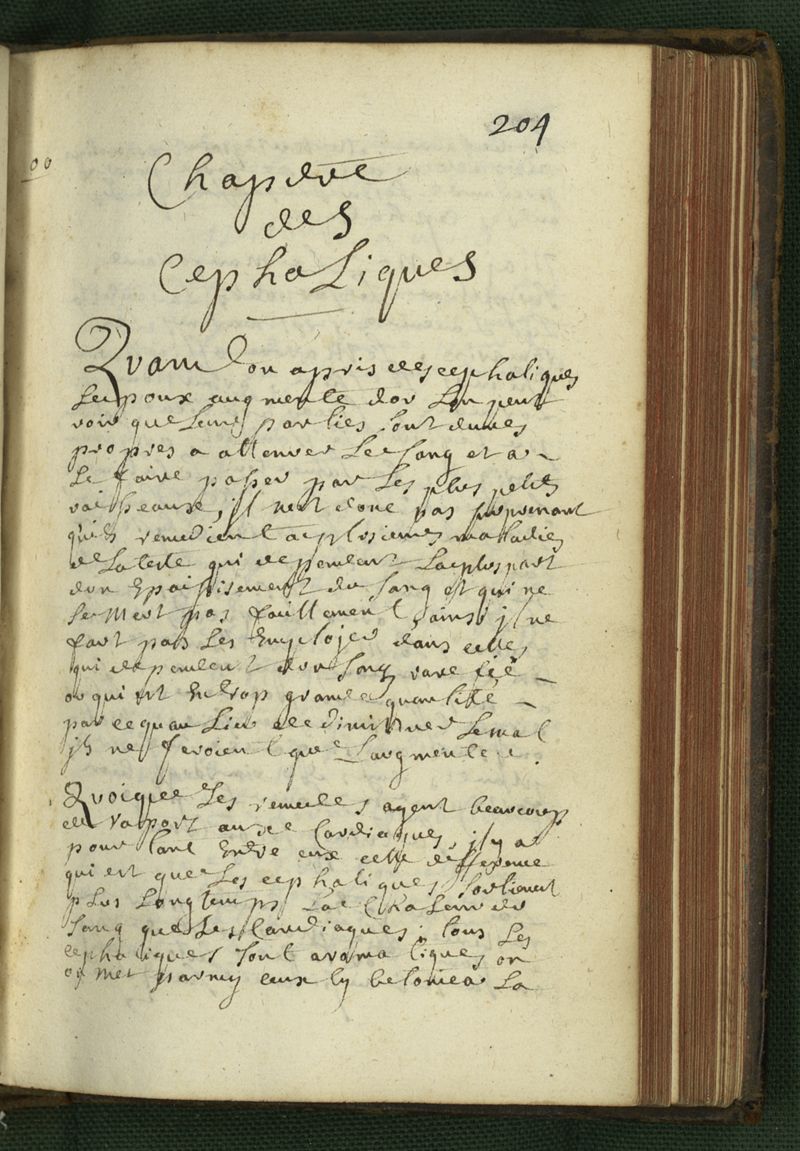 204
00
Chapitre
des
Cephaliques
Quant on a pris des cephaliques
Le poux augmente dou Lon peut
voir que Leurs parties sont dunes
propres a attenuer Le sang et a
Le faire passer par Les plus petits
vaisseaux, il nest donc pas surprenant
quils remedient a plusieurs maladies
de La teste qui dependent La pluspart
dun Epaississement du sang et qui ne
se meut pas facillement, ainsi j ne
faut pas Les Employer dans celles
qui dependent dun sang rarefié
ou qui est En trop grande quantitte
par ce quau Lieu de diminuer Le mal
jls ne feroient que Laugmenter.
Quoique Les remedes ayent beaucoup
de raport aux Cardiaques, il y a
pour tant Entre eux cette difference
qui est que Les cephaliques soutienent
plus Longtemps La chaleur du
sang que Les Cardiaques; tous Les
cephaliques sont aromatiques on
met parmy eux la betoine La